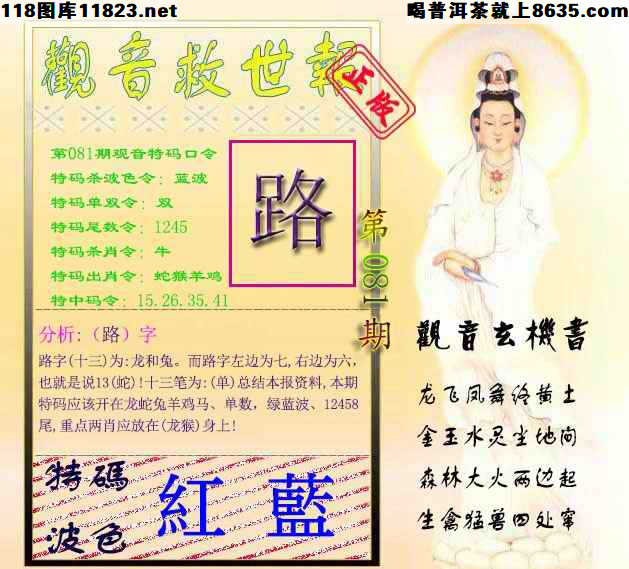 118图库11823.net
喝普洱茶就上8635.com
觀音救世報
正版
第081期观音特码口令
特码杀波色令: 蓝波
特码单双令: 双
特码尾数令: 1245
特码杀肖令: 牛
特码出肖令: 蛇猴羊鸡
特中码令: 15.26.35.41
路
第081期
分析:（路）字
路字(十三)为:龙和兔。而路字左边为七,右边为六,
也就是说13(蛇)!十三笔为:(单)总结本报资料,本期
特码应该开在龙蛇兔羊鸡马、单数，绿蓝波、12458
尾,重点两肖应放在(龙猴)身上!
特碼
波色
紅 藍
觀音玄機書
龙飞凤舞终黄土
金玉水灵尘地间
森林大火两边起
生禽猛兽四处窜